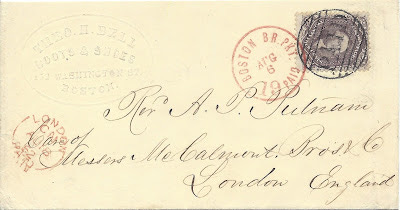 THEO. H. BELL
BOOTS & SHOES
WASHINGTON ST.
BOSTON.
BOSTON BR. PKT.
AUG
6
19
PAID
Revd. A. P. Putnam
Care of
Messers McCalmont, Bros. & Co
London England
LONDON
PAID